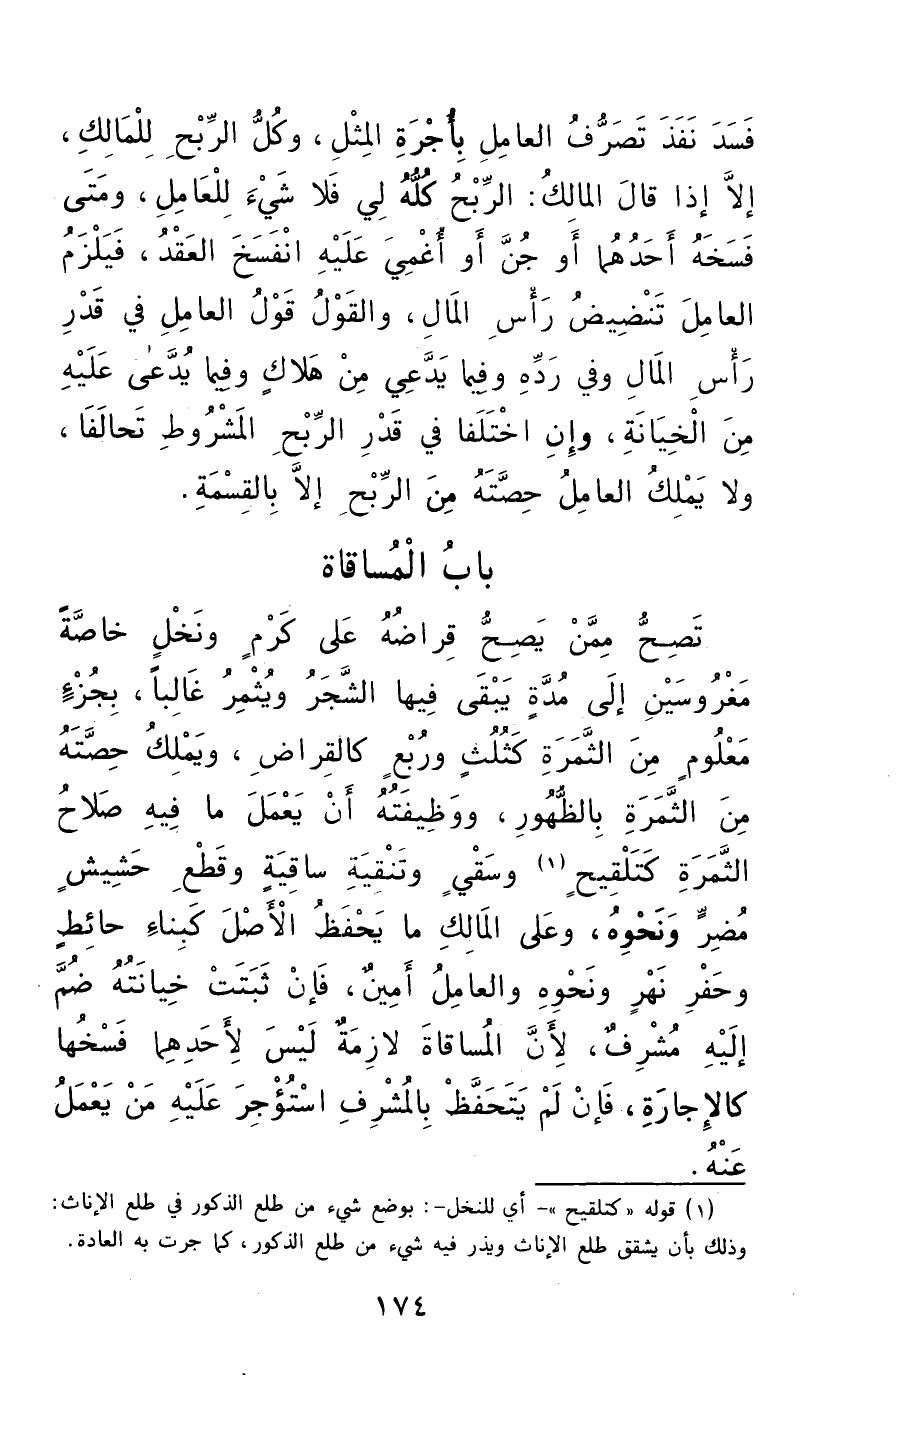 فَسَدَ نَفَذَ تَصَرُّفُ العامِلِ بِأُجْرَةِ المِثْلِ ، وكُلُّ الرِّبْحِ لِلْمَالِكِ ،
إلاَّ إذا قالَ المالكُ: الرِّبْحُ كُلُّهُ لي فَلا شَيْءَ لِلْعَامِلِ ، ومَتَى
فَسَخَهُ أَحَدُهُما أَو جُنَّ أَو أُغْمِيَ عَلَيْهِ انْفَسَخَ العَقْدُ ، فَيَلْزَمُ
العامِلَ تَنْضِيضُ رَأْسِ المَالِ ، والقَوْلُ قَوْلُ العامِلِ في قَدْرِ
رَأْسِ المَالِ وفي رَدِّهِ وفِيما يَدَّعِي مِنْ هَلاكٍ وفِيما يُدَّعىٰ عَلَيْهِ
مِنَ الْخِيَانَةِ ، وإنِ اخْتَلَفا في قَدْرِ الرِّبْحِ المَشْرُوطِ تَحالَفَا ،
ولا يَمْلِكُ العامِلُ حِصَّتَهُ مِنَ الرِّبْحِ إلاَّ بِالقِسْمَةِ .
بابُ الْمُساقاة
تَصِحُّ مِمَّنْ يَصِحُّ قِراضُهُ عَلى كَرْمٍ ونَخْلٍ خاصَّةً
مَغْرُوسَيْنِ إلَى مُدَّةٍ يَبْقَى فِيها الشَّجَرُ ويُثْمِرُ غَالِباً ، بِجُزْءٍ
مَعْلُومٍ مِنَ الثَّمَرَةِ كَثُلُثٍ ورُبْعٍ كالقِراضِ ، ويَمْلِكُ حِصَّتَهُ
مِنَ الثَّمَرَةِ بِالظُّهُورِ ، ووَظِيفَتُهُ أَنْ يَعْمَلَ ما فِيهِ صَلَاحُ
الثَّمَرَةِ كَتَلْقِيحٍ (١) وسَقْيٍ وتَنْقِيَةِ ساقِيَةٍ وقَطْعِ حَشيشٍ
مُضِرٍّ وَنَحْوِهُ ، وعَلى المَالكِ ما يَحْفَظُ الْأَصْلَ كَبِناءِ حائطٍ
وحَفْرِ نَهْرٍ ونَحْوِهِ والعامِلُ أَمِينٌ ، فَإنْ ثَبَتَتْ خِيانَتُهُ ضُمَّ
إلَيْهِ مُشْرِفٌ ، لِأَنَّ المُساقاةَ لازِمَةٌ لَيْسَ لِأَحَدِهِما فَسْخُها
كالإجارَةِ ، فَإنْ لَمْ يَتَحَفَّظْ بِالمُشْرِفِ اسْتُؤْجِرَ عَلَيْهِ مَنْ يَعْمَلُ
عَنْهُ .
(١) قوله « كتلقيح »- أي للنخل-: بوضع شيء من طلع الذكور في طلع الإناث:
وذلك بأن يشقق طلع الإناث ويذر فيه شيء من طلع الذكور ، كما جرت به العادة .
١٧٤